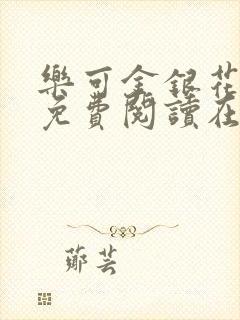 樂可金銀花
免費閱讀在
鄭芸